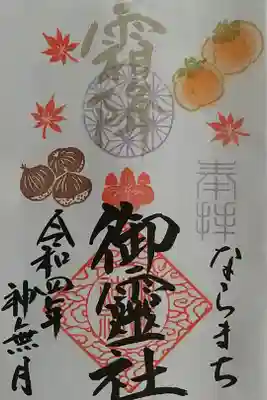 奉拝
ならまち
霜降
御靈社
令和四年
神無月